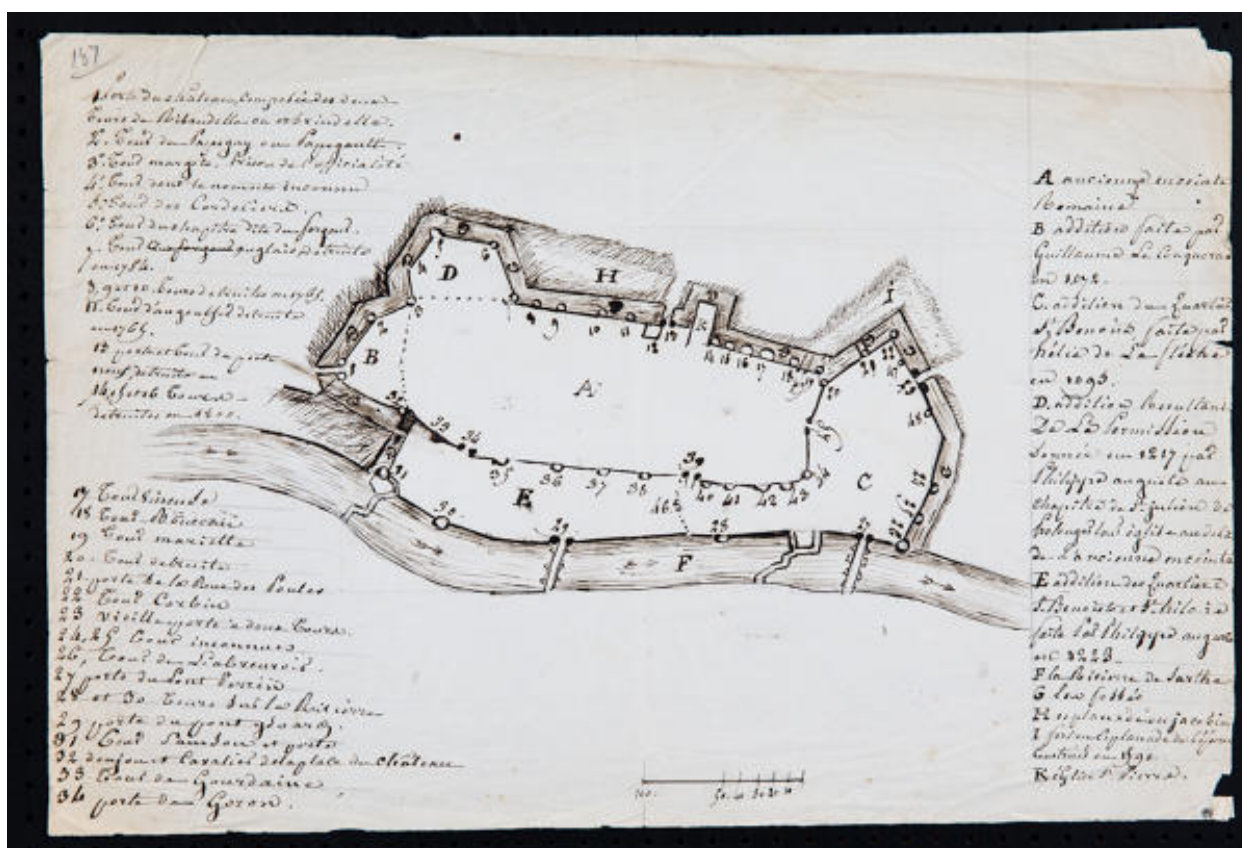 187
1 Porte du château, composée des deux
tours de Ribaudelle ou
2. Tour du Papegay ou Papegault.
3º. Tour margot. Prison de l'officialité
4º. Tour dont le nom est inconnu
5º. Tour des Cordeliers.
6º. Tour du chapitre dite du forgeur.
7. Tour anglais, détruite
en 1784.
8, 9 et 10. tours détruites en 1765.
11. Tour d'angouffier détruite
en 1765.
12 porte et tour du pont
neuf, détruite en
14, 15 et 16 Tours
détruites en 1800.
17 Tour
18 Tour
19 Tour mariette
20. Tour détruite
21 porte de la Rue des Poules
22 Tour Corbin
23 Vieille porte à deux Tours.
24, 25 Tour inconnues
26, Tour de L'abreuvoir.
27 porte du Pont Perrin
28 et 30 Tours sur la Rivière
29 porte du pont ysoard
31 Tour Samson et porte
32 donjon et Cavalier de la place du château
33 Tour de Gourdaine
34 porte du Goron.
A ancienne enceinte
Romaine
B addition faite par
Guillaume Le Conquérant
en 1072.
C. addition du Quartier
St Benoist faite par
hélie de La flèche
en 1093.
D. addition résultant
De La Permission
donnée en 1217 par
Philippe auguste au
chapitre de St julien de
prolonger son église au delà
de l'ancienne enceinte
E addition des Quartiers
St Benoist et St hilaire
faite par Philippe auguste
en 1223.
F la Rivière de Sarthe
G Les fossés
H esplanade des jacobins
I fort ou Esplanade de l'éperon
construit en 1590
K église St Pierre.
D
H
I
B
A
C
E
F